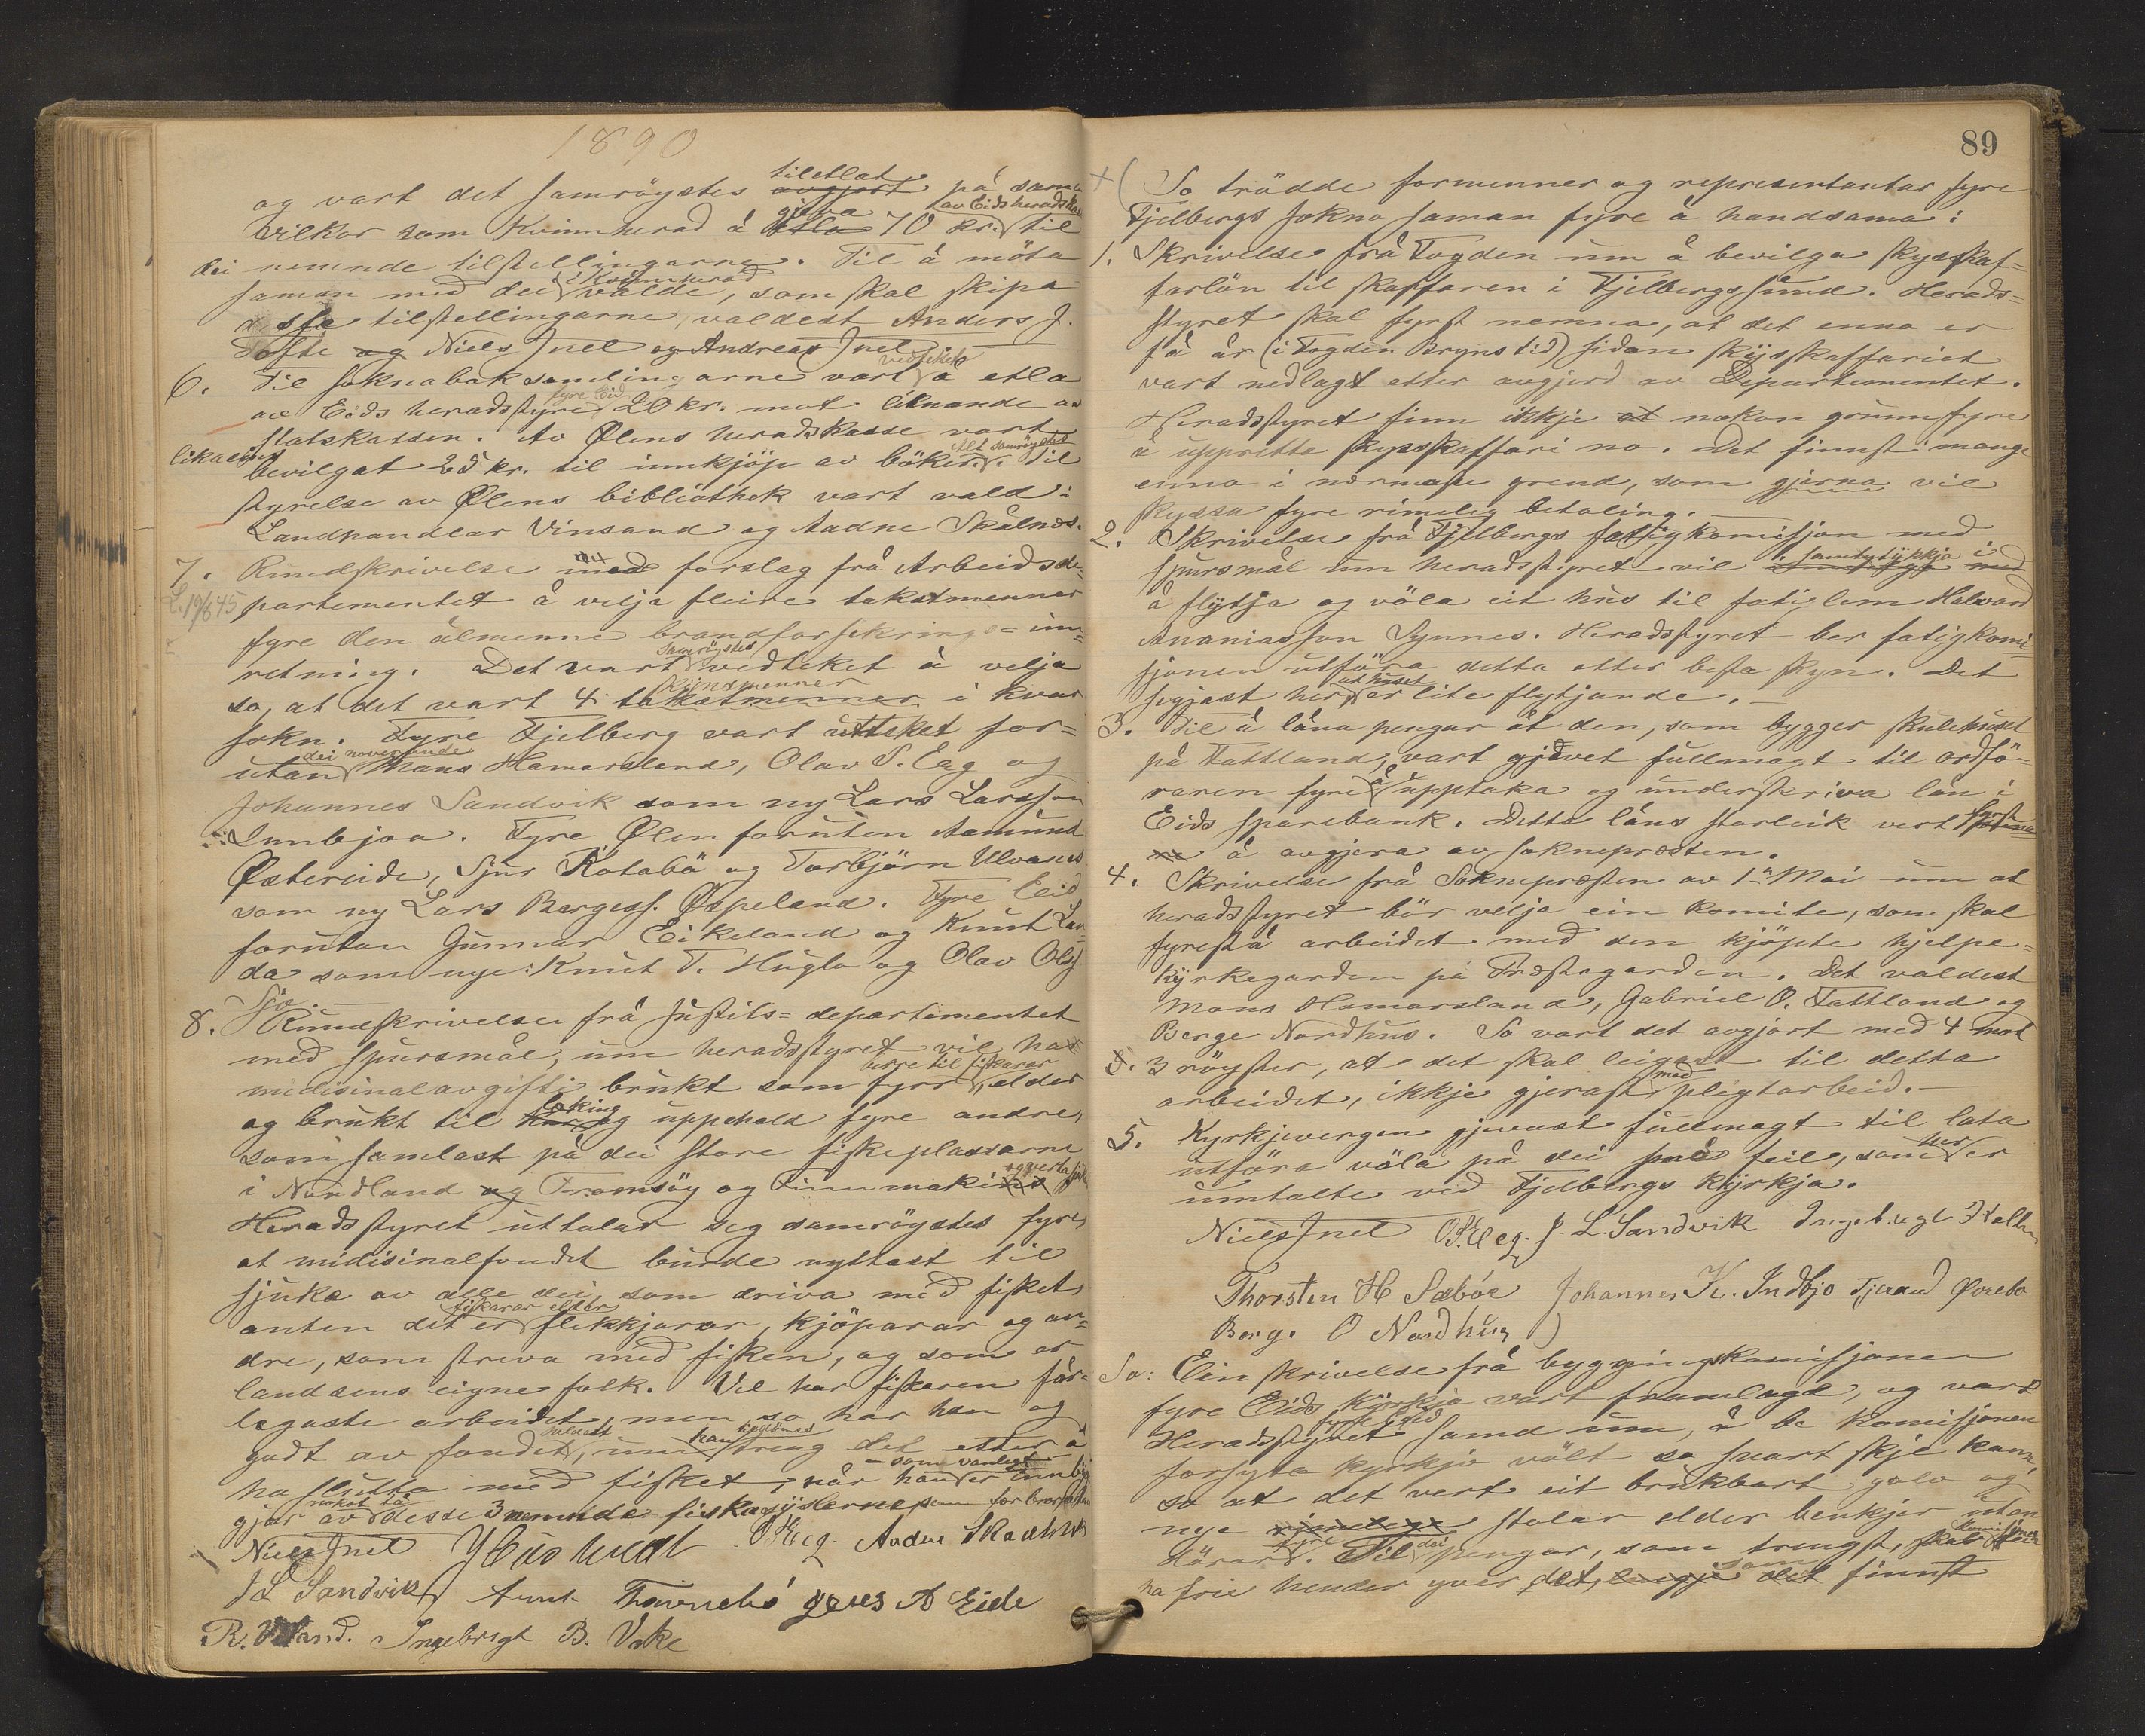 1890
og vart det samröystes tiletlat avgjort på same
vilkor som Kvinnherad å gjeva etla 70 kr. av Eids heradskasse til
dei nemnde tilstellingarne. Til å möta
saman med dei i Kvinnherad valde, som skal skipa
desse tilstellingarne, valdest Anders J.
Tofte og Niels Snel og Andreas Snel.
6. Til soknaboksamlingarne vart vedteket å etla
av Eids heradstyre fyre Eid 20 kr. mot liknande av
statskassen. Av Ølens heradskasse vart
likaeins bevilgat 25 kr. til innkjöp av böker. Alt samröystes. Til
styrelse av Ølens bibliothek vart vald:
Landhandlar Vinsand og Aadne Skålnes.
7. Rundskrivelse med forslag frå Arbeidsde-
L. 19/6 45 partementet å velja fleire takstmenner
fyre den ålmenne brandforsikrings-inn-
retning. Det vart samröystes vedteket å velja
so, at det vart 4 skjönsmenner takstmenner i kvar
sokn. Fyre Fjelberg vart utteket for-
utan dei noverande Mans Hamarsland, Olav S. Eag og
Johannes Sandvik som ny Lars Larsson
Innbjoa. Fyre Ølen foruten Aamund
Østereide, Sjur Kotabö og Torbjörn Ulvanes
som ny Lars Bargess. Øspeland. Fyre Eid
forutan Gunnar Eikeland og Knut Lan-
da som nye: Knut T. Huglo og Olav Olss.
Sjo.
8. Rundskrivelse frå Justits-departementet
med spursmål, um heradsstyret vil ha
midisinalavgifti brukt som fyrr berre til fiskarar, elder
og brukt til læking kur og uppehald fyre andre,
som samlast på dei store fiskeplassarne
i Nordland og Tromsöy og Finnmarki og verta sjuke
Heradsstyret uttalar seg samröystes fyre,
at midisinalfondet burde nyttast til
sjuke av alle dei, som driva med fisket
anten det er fiskarar elder flekkjarar, kjöparar og an-
dre, som streva med fisken, og som er
landsens eigne folk. Vel har fiskaren får-
legaste arbeidet, men so har han og
godt av fondet, um han treng det etter å
ha slutta med fisket, når han - som vanlegt er innby-
gjar av nokot tå desse 3 nemnde fiskesyslerne
Niels Snel O S Eeg. Aadne Skaalnes
J L Sandvik A Eide
R. Vestand. Ingebrigt B. Vike
89
So trödde formenner og representantar fyre
Fjelbergs sokna saman fyre å handsama:
1. Skrivelse frå Fogden um å bevilga skysskaf-
farlön til skaffaren i Fjelbergssund. Herads-
styret skal fyrst nemna, at det enno er
få år (i Fogden Bryns tid) sidan skysskaffariet
vart nedlagt etter avgjerd av Departementet.
Heradsstyret finn ikkje at nokon grunn fyre
å uppretta skysskaffari no. Det finnst mange
enno i nærmaste grend, som gjerna vil
skyssa fyre rimeleg betaling. —
2. Skrivelse frå Fjelbergs fatigkomisjon med
spursmål um heradsstyret vil samtykkja i
å flytja og völa eit hus til fatiglem Halvard
Ananiasson Synnes. Heradsstyret ber fatigkomi-
sjonen utföra detta etter besta skyn. Det
segjast her, at huset er lite flytjande. —
3. Til å låna pengar åt den, som bygger skulehuset
på Fattland, vart gjevet fullmagt til ordfö-
raren fyre å upptaka og underskriva lån i
Eids sparebank. Detta låns storleik vert fyrst
å avgjera av soknepresten.
4. Skrivelse frå Soknepresten av 1ste Mai um at
heradsstyret bör velja ein komite, som skal
fyrestå arbeidet med den kjöpte hjelpe-
kyrkegarden på Præstagarden. Det valdest
Mons Hamarsland, Gabriel O. Fattland og
Berge Nordhus. So vart det avgjort med 4 mot
3 röyster, at det skal leigast til detta
arbeidet, ikkje gjerast med pligtarbeid. —
5. Kyrkjevergen gjevast fullmagt til lata
utföra völa på dei små feile, som her er
umtalte ved Fjelbergs kyrkja.
Niels Snel O.S. Eeg. J. L. Sandvik Ingebrigt
Thorsten H Sæbóe Johannes K. Indbjo Tjerand Øvrebo
Berge O Nordhus)
So: Ein skrivelse frå byggingskomisjonen
fyre Eids kyrkja vart framlagd, og vart
Heradsstyret fyre Eid samd um, å be komisjonen
forsyta kyrkja völt so snart skje kann,
so at det vert eit brukbart golv og
nye stolar elder benkjer utan
dörar. Fyre dei pengar, som trengst, skal komisjonen
ha frie hender yver det, som det finnst